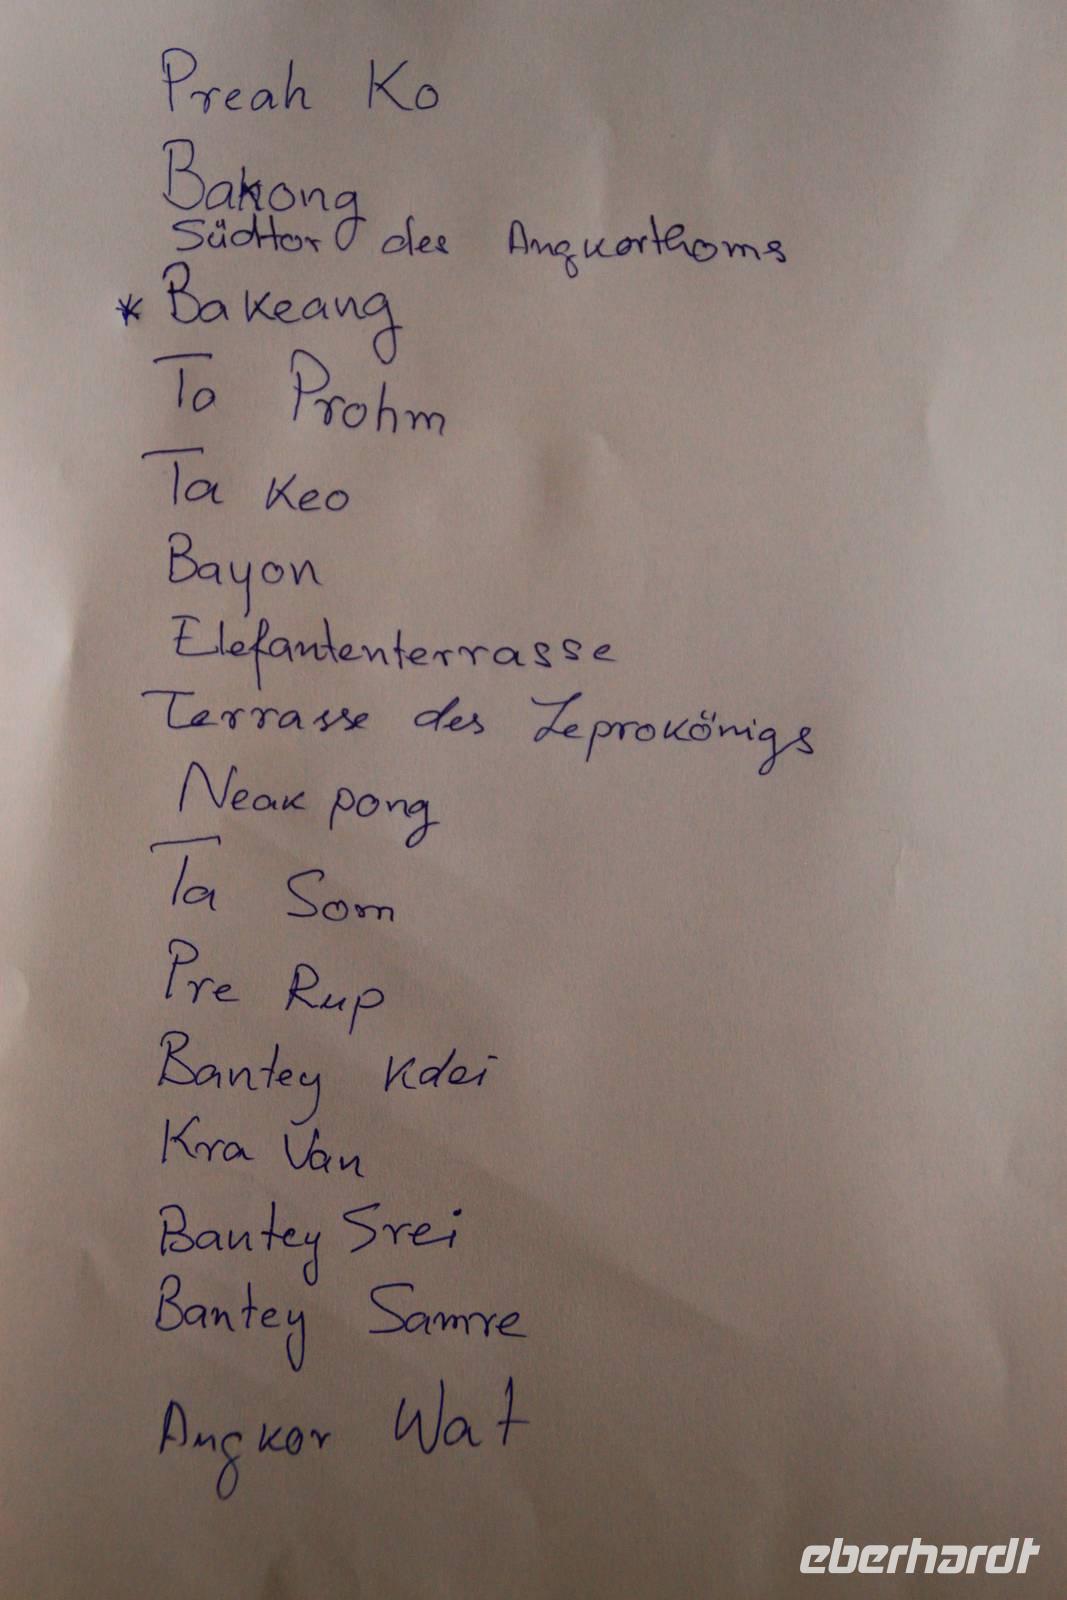 Preah Ko
Bakong
Südttor des Angkorthoms
* Bakeang
Ta Prohm
Ta Keo
Bayon
Elefantenterrasse
Terrasse des Leprokönigs
Neak pong
Ta Som
Pre Rup
Bantey Kdei
Kra Van
Bantey Srei
Bantey Samre
Angkor Wat
eberhardt